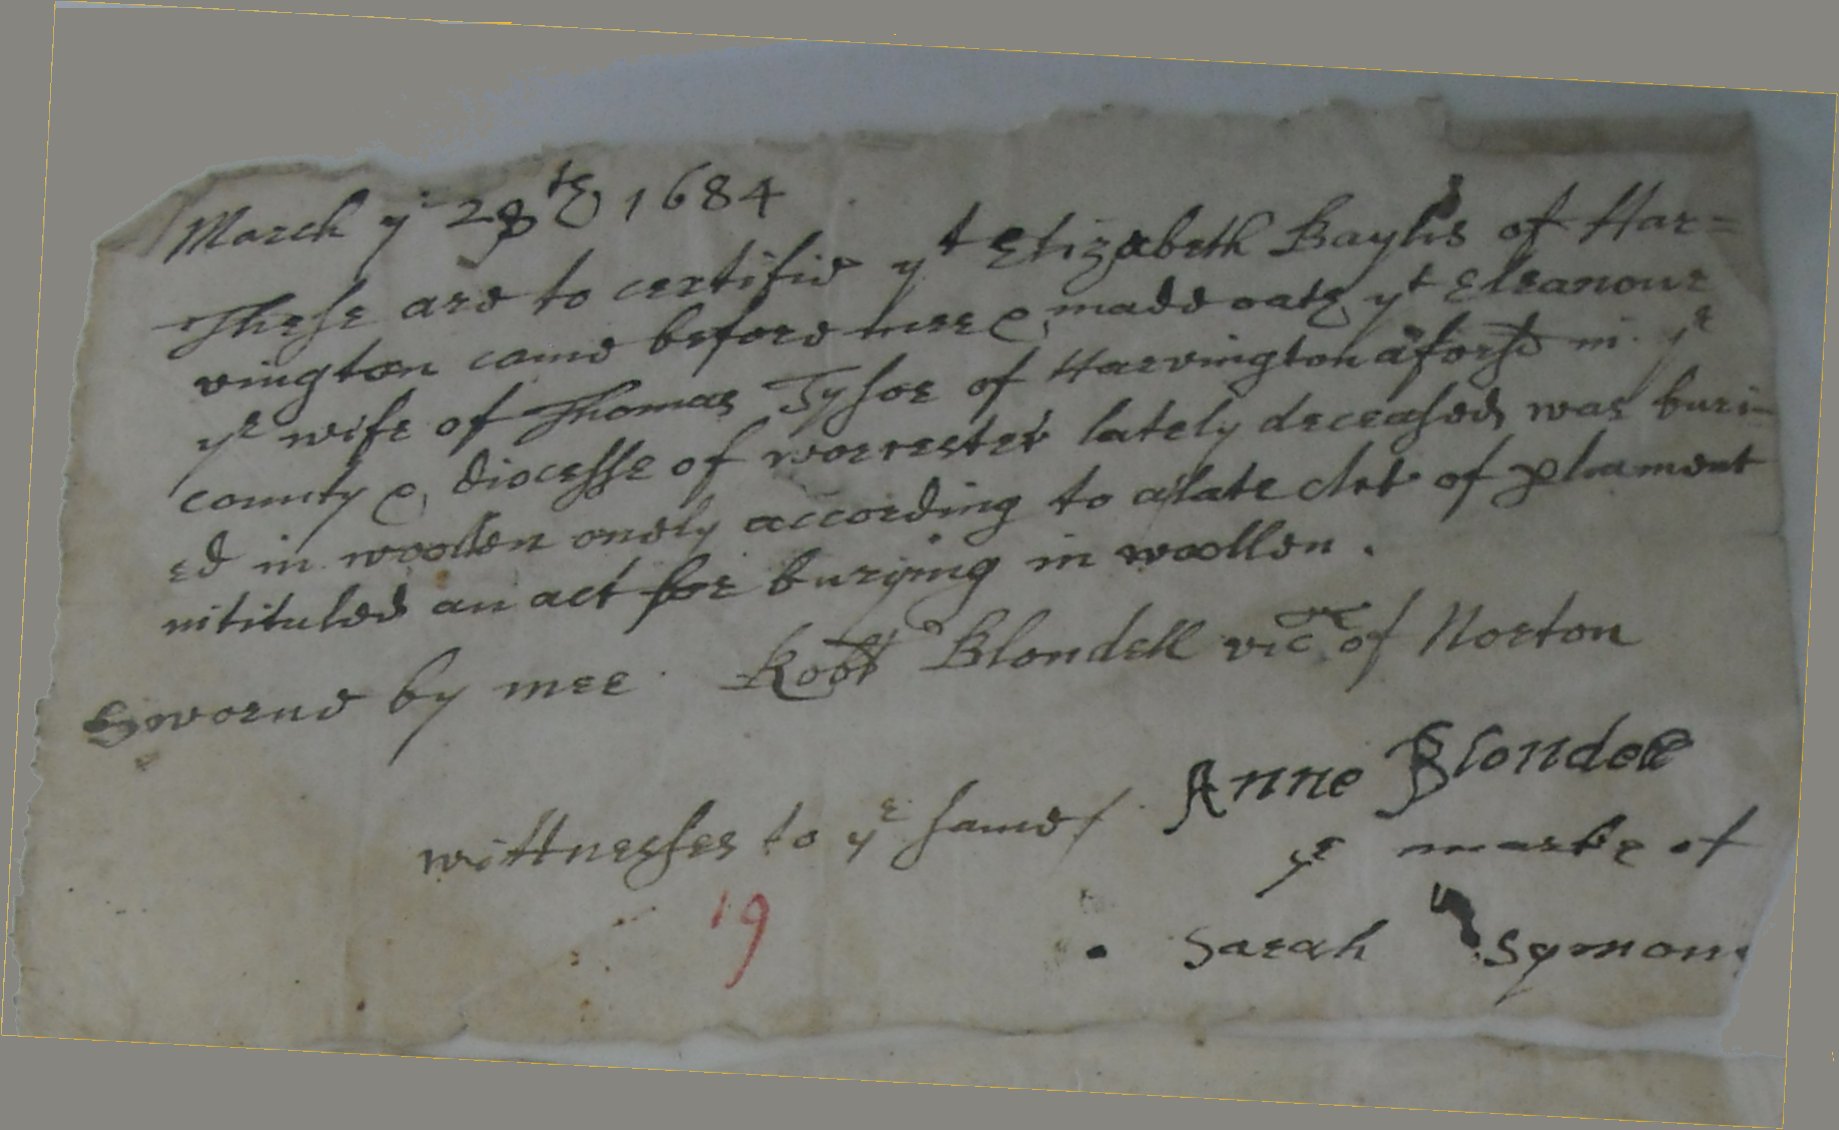 March ye 28th 1684
These are to certifie yt Elizabeth Baylis of Har=
vington came before mee & made oath yt Eleanour
ye wife of Thomas Tysoe of Harvington aforsd in ye
county & diocesse of worcester lately deceased, was buri=
ed in woollen onely according to a late Act of pliament
intituled an act for burying in woollen.
Sworne by mee Robt Blondell vic of Norton
wittnesses to ye same / Anne Blondell
ye marke of
Sarah Symons
19